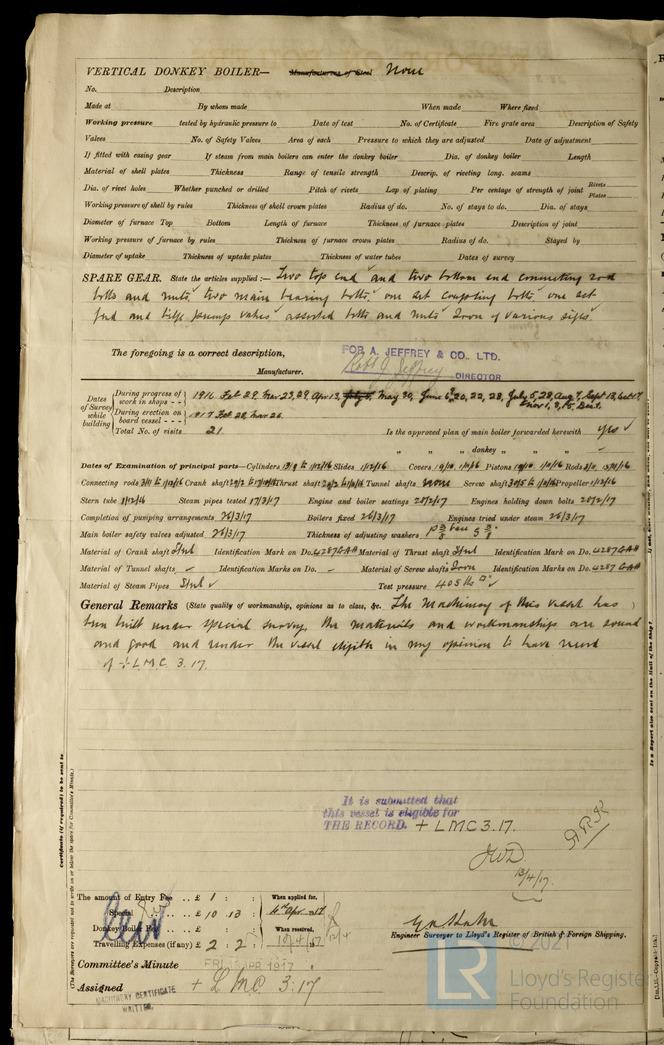 VERTICAL DONKEY BOILER— Manufacturers of Steel None
No. Description
Made at By whom made When made Where fixed
Working pressure tested by hydraulic pressure to Date of test No. of Certificate Fire grate area Description of Safety
Valves No. of Safety Valves Area of each Pressure to which they are adjusted Date of adjustment
If fitted with easing gear If steam from main boilers can enter the donkey boiler Dia. of donkey boiler Length
Material of shell plates Thickness Range of tensile strength Descrip. of riveting long. seams
Dia. of rivet holes Whether punched or drilled Pitch of rivets Lap of plating Per centage of strength of joint Rivets Plates
Working pressure of shell by rules Thickness of shell crown plates Radius of do. No. of stays to do. Dia. of stays
Diameter of furnace Top Bottom Length of furnace Thickness of furnace plates Description of joint
Working pressure of furnace by rules Thickness of furnace crown plates Radius of do. Stayed by
Diameter of uptake Thickness of uptake plates Thickness of water tubes Dates of survey
SPARE GEAR. State the articles supplied:— Two top end and two bottom end connecting rod
bolts and nuts, two main bearing bolts, one set coupling bolts one set
feed and bilge pumps valves assorted bolts and nuts Iron of various sizes
The foregoing is a correct description,
FOR A. JEFFREY & CO., LTD.
Robt J. Jeffrey
Manufacturer. DIRECTOR
Dates of Survey while building
During progress of work in shops - - 1916 Feb 29, Mar 23, 29, Apr 13, May 30, June 6, 20, 22, 28, July 5, 28, Aug 9, Sept 13, Oct 17
Nov 1, 8, 15, Dec 1.
During erection on board vessel - - 1917 Feb 28, Mar 26.
Total No. of visits 21 Is the approved plan of main boiler forwarded herewith yes
" " " donkey " " "
Dates of Examination of principal parts—Cylinders Slides 1/12/16 Covers Pistons Rods
Connecting rods Crank shaft Thrust shaft Tunnel shafts none Screw shaft Propeller 1/12/16
Stern tube 1/12/16 Steam pipes tested 17/3/17 Engine and boiler seatings 28/2/17 Engines holding down bolts 28/2/17
Completion of pumping arrangements 26/3/17 Boilers fixed 26/3/17 Engines tried under steam 26/3/17
Main boiler safety valves adjusted 26/3/17 Thickness of adjusting washers P 3/8 S 3/8
Material of Crank shaft Steel Identification Mark on Do. 4287 GAH Material of Thrust shaft Steel Identification Mark on Do. 4287 GAH
Material of Tunnel shafts - Identification Marks on Do. - Material of Screw shafts Iron Identification Marks on Do. 4287 GAH
Material of Steam Pipes Steel Test pressure 405 lbs
General Remarks (State quality of workmanship, opinions as to class, &c. The Machinery of this vessel has
been built under special survey, the materials and workmanship are sound
and good and render the vessel eligible in my opinion to have record
of + L.M.C. 3.17.
It is submitted that
this vessel is eligible for
THE RECORD. + LMC 3.17.
JWD
13/4/17.
The amount of Entry Fee .. £ 1 :
Special .. £ 10 . 13 :
Donkey Boiler Fee .. £ :
Travelling Expenses (if any) £ 2 : 2 :
When applied for,
4th Apr 17
When received,
Engineer Surveyor to Lloyd's Register of British & Foreign Shipping.
Committee's Minute FRI. APR 1917
Assigned + L.M.C. 3.17
MACHINERY CERTIFICATE
WRITTEN.
Certificate (if required) to be sent to
(The Surveyors are requested not to write on or below the space for Committee's Minute.)
LR
© 2021
Lloyd's Register
Foundation